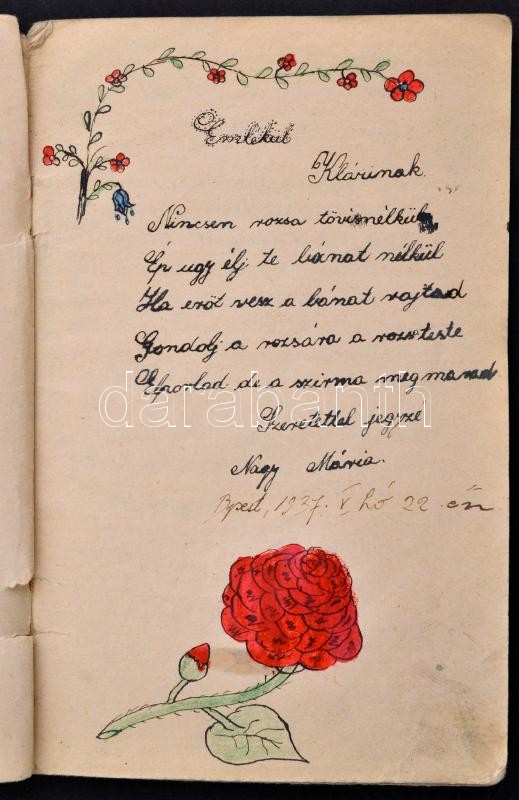 Emlékül
Klárinak
Nincsen rozsa tövisnélkül
Ép ugy élj te bánat nélkül
Ha eröt vesz a bánat rajtad
Gondolj a rozsára a rozsteste
Eporlad de a szirma megmarad
darabanth
Szeretettel jegyze
Nagy Mária.
Bpest, 1937. V hó 22 én